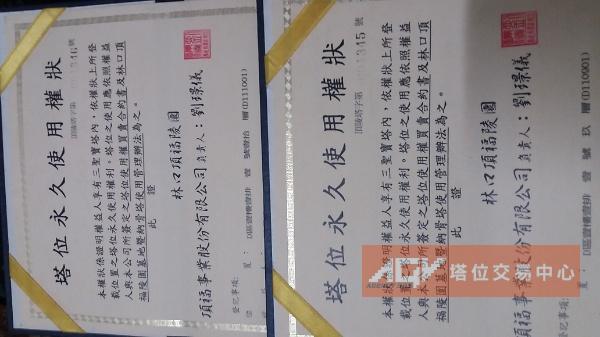 塔位永久使用權狀
頂陵塔字第 346 號
本權狀係證明權益人享有三聖寶塔內，依權狀上所登
載位置之塔位永久使用權利。塔位之使用應依照權益
人與本公司所簽定之塔位使用權買賣合約書及林口頂
福陵園墓地暨納骨塔使用管理辦法為之。
此證
林口頂福陵園
頂福事業股份有限公司 負責人：劉璟儀
登記事項：
D區壹樓壹排 壹 號壹拾 層(D111001)
塔位永久使用權狀
頂陵塔字第 345 號
本權狀係證明權益人享有三聖寶塔內，依權狀上所登
載位置之塔位永久使用權利。塔位之使用應依照權益
人與本公司所簽定之塔位使用權買賣合約書及林口頂
福陵園墓地暨納骨塔使用管理辦法為之。
此證
林口頂福陵園
頂福事業股份有限公司 負責人：劉璟儀
登記事項：
D區壹樓壹排 壹 號玖 層(D110901)
塔位交易中心